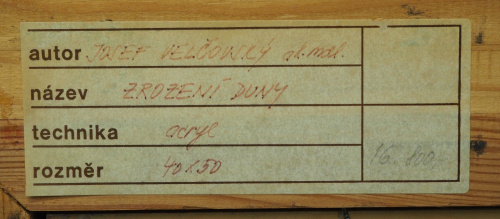 autor JOSEF VELČOVSKÝ ak.mal.
název ZROZENÍ DUNY
technika acryl
rozměr 40x50
16.800,-